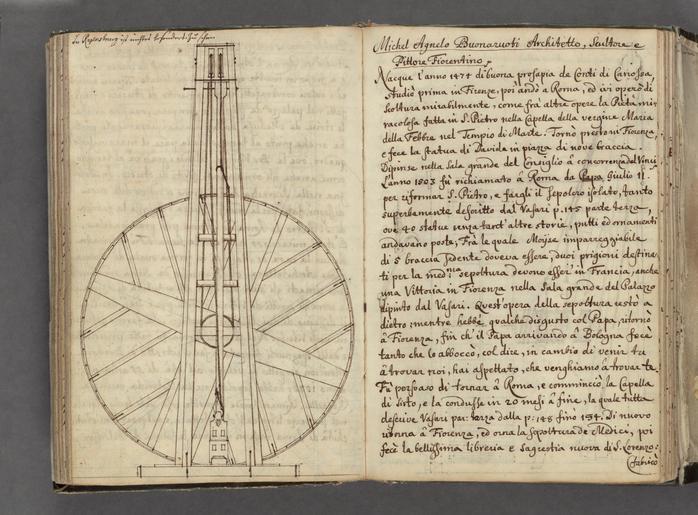 Michel Agnelo Buonaruoti Architetto, Scultore e
Pittore Fiorentino.
Nacque l'anno 1474 di buona prosapia de Conti di Canossa,
studiò prima in Firenze, poi andò a Roma, ed ivi operò di
Scoltura mirabilmente, come frà altre opere la Pietà mi-
racolosa fatta in S. Pietro nella Capella della vergine Maria
della Febbre nel Tempio di Marte. Tornò presto in Fiorenza,
e fece la statua di Davide in piazza di nove braccia.
Dipinse nella Sala grande del Consiglio à concorrenza del Vinci
L'anno 1503 fù richiamato à Roma da Papa Giulio II.
per riformar S. Pietro, e fargli il Sepolcro isolato, tanto
superbamente descritto dal Vasari p. 145 parte terza,
ove 40 statue senza tant'altre storie, putti ed ornamenti
andavano poste, Frà le quale Moijse imparreggiabile
di 5 braccia sedente doveva essere, duoi prigioni destina-
ti per la med:ma sepoltura devono esser in Francia, anche
una Vittoria in Fiorenza nella Sala grande del Palazzo
dipinto dal Vasari. Quest'opera della sepoltura restò a
dietro; mentre hebbe qualche disgusto col Papa, ritornò
à Fiorenza, fin ch'il Papa arrivando à Bologna fece
tanto che lo abboccò, col dire, in cambio di venir tu
à trovar noi, hai aspettato, che venghiamo à trovar te.
Fù persuaso di tornar à Roma, e comminciò la Capella
di Sisto, e la condusse in 20 mesi à fine, la quale tutta
descrive Vasari par: terza dalla p: 148 fino 154. Di nuovo
ritorna à Fiorenza, ed orna la sepoltura de Medici, poi
fece la bellissima libreria e sagrestia nuova di S. Lorenzo:
fabricò